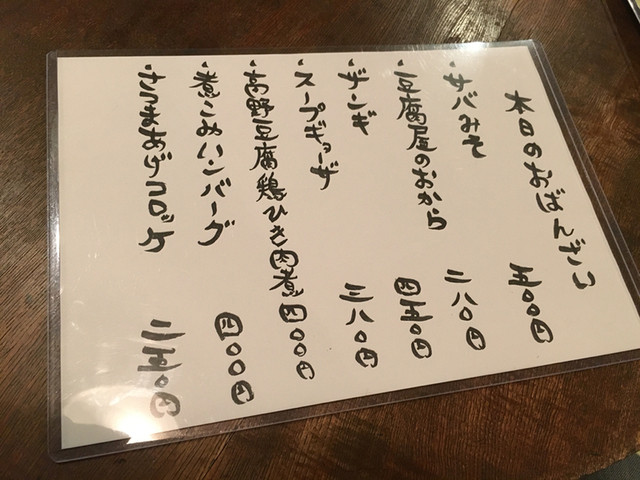 本日のおばんざい
・サバみそ 五〇〇円
・豆腐屋のおから 二八〇円
・ザンギ 四五〇円
・スープギョーザ 三八〇円
・高野豆腐鶏ひき肉煮 四〇〇円
・煮こみハンバーグ 四〇〇円
・さつまあげコロッケ 二五〇円